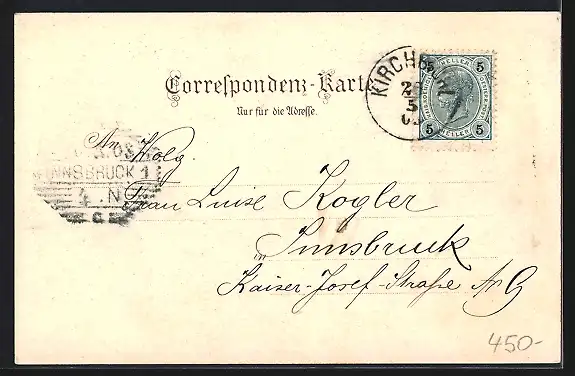 Correspondenz-Karte
Nur für die Adresse.
KIRCHBERG
5
5 HELLER 5
5 HELLER 5
An
INNSBRUCK 1
4 . N
Wolg.
Frau Luise Kogler
in Innsbruck
Kaiser-Josef-Straße № 9
450-